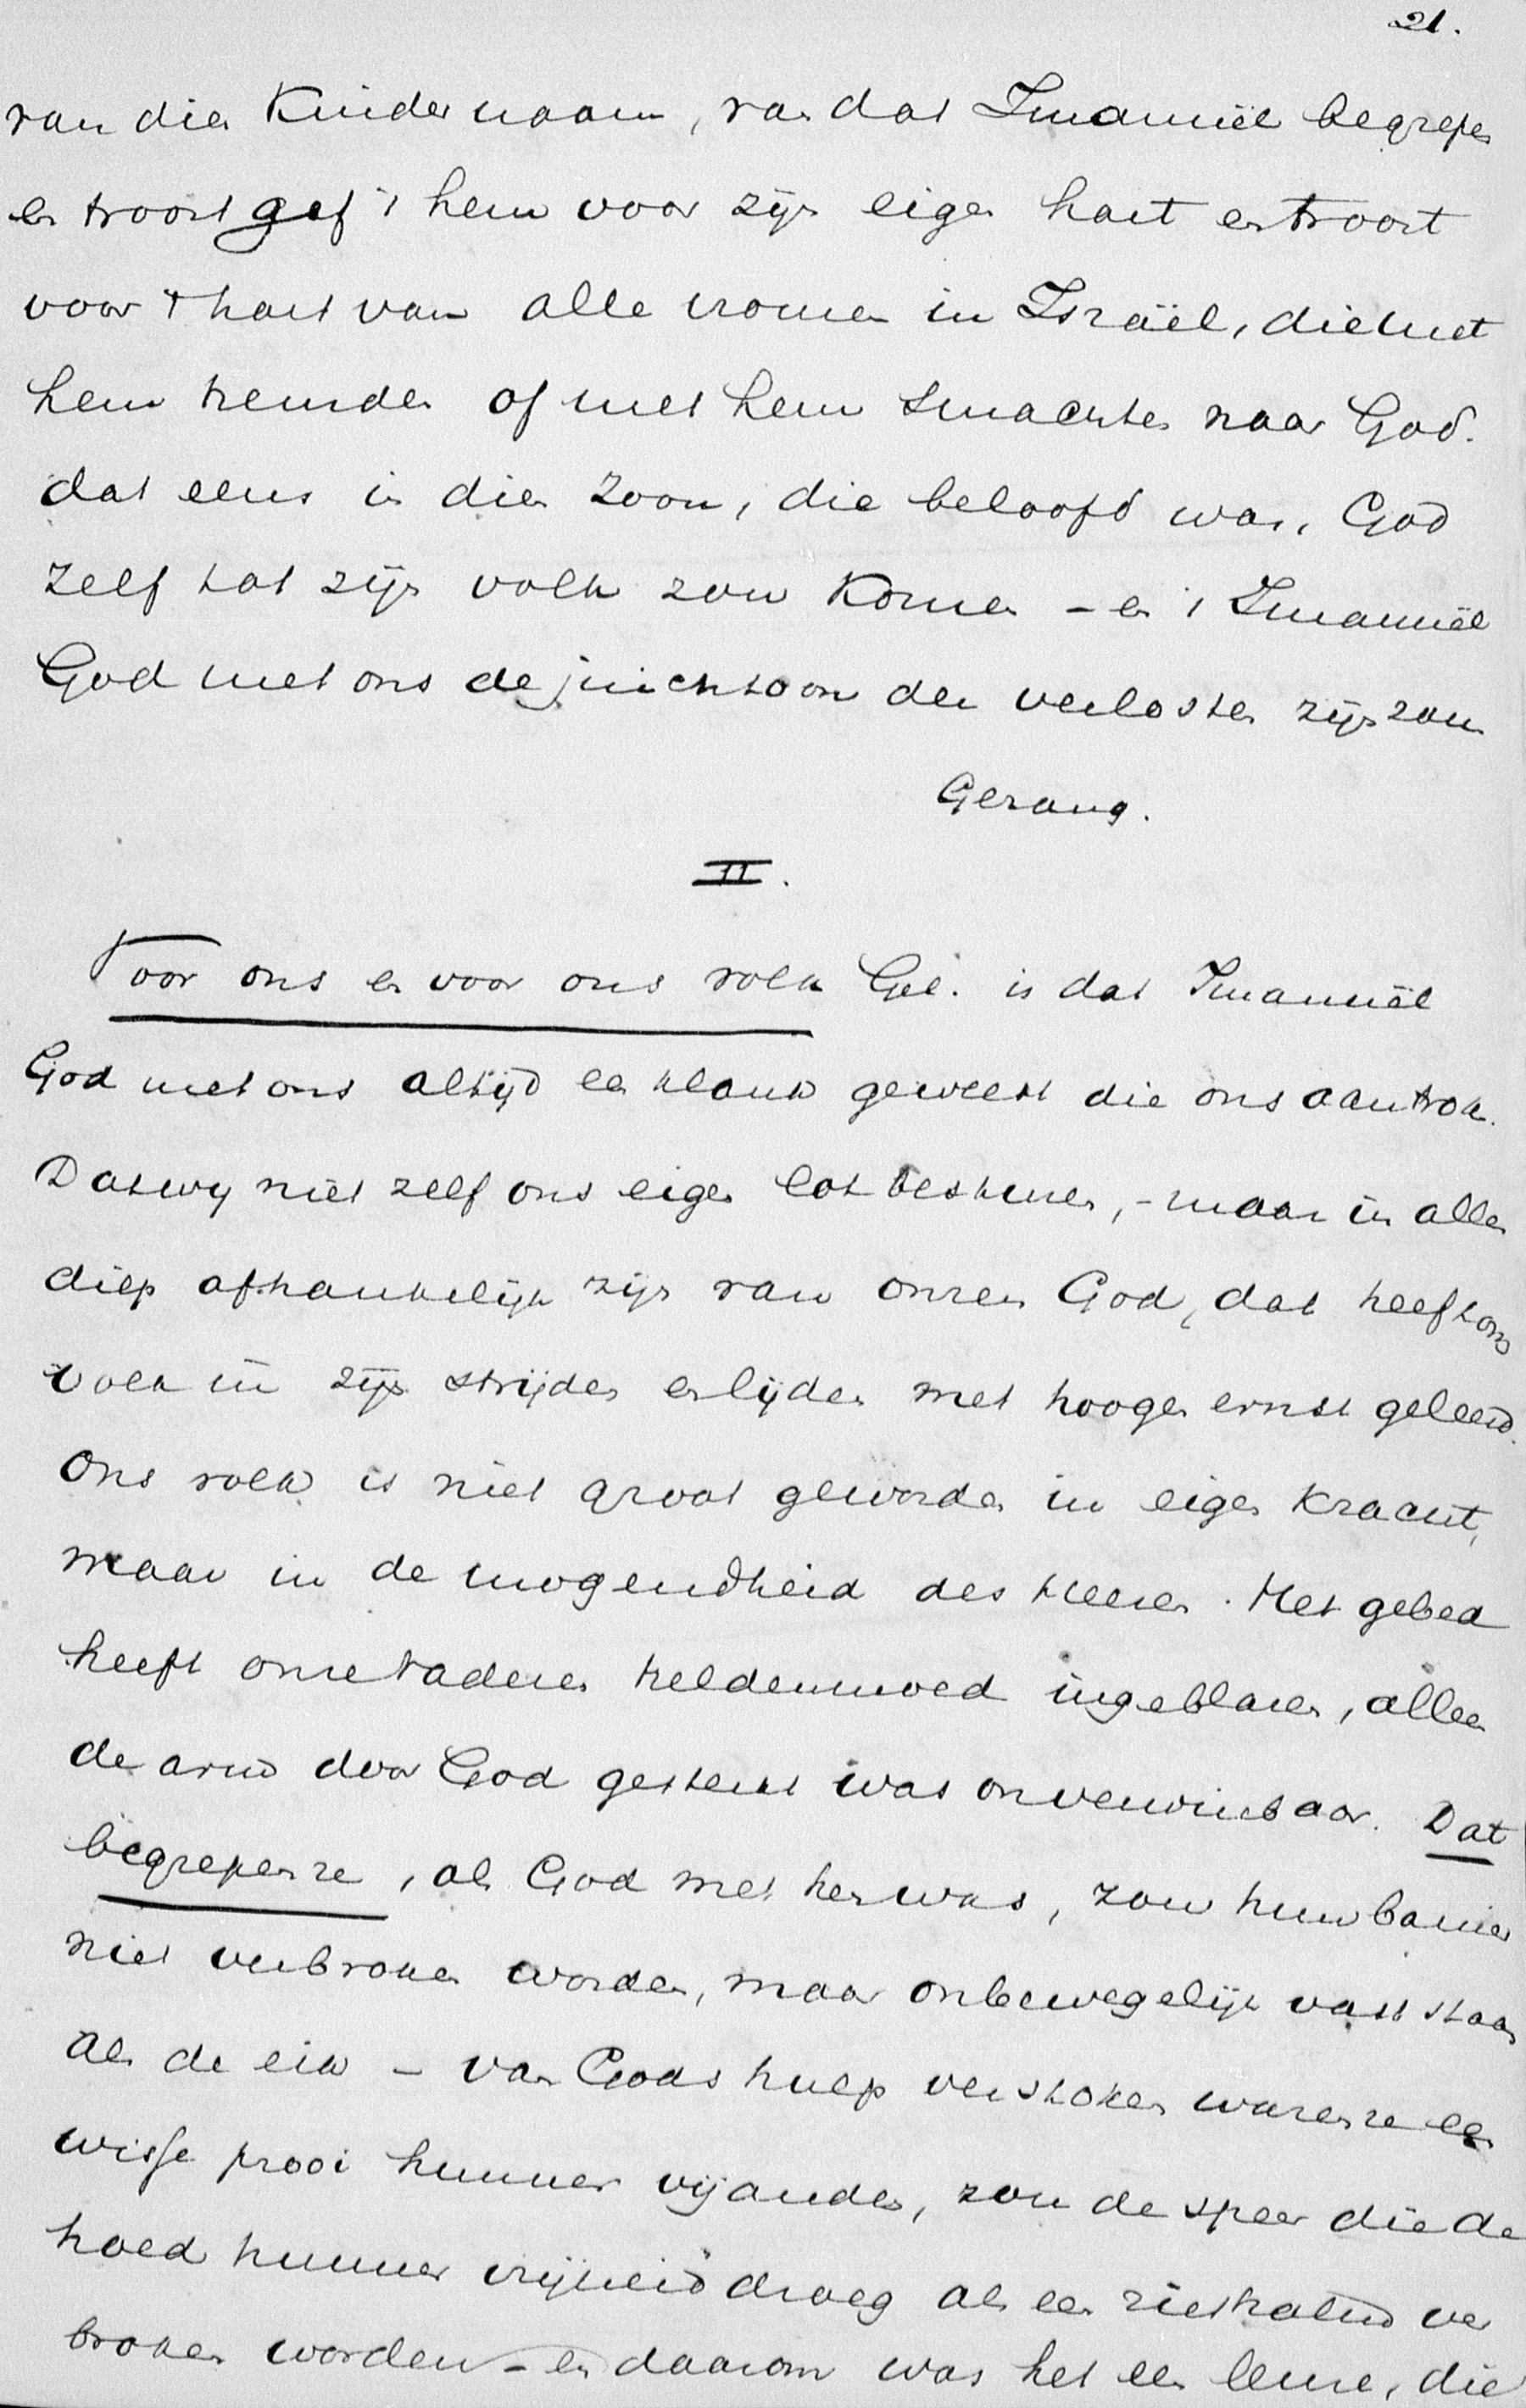 21.
van dien Kindernaam, van dat Immanuël begrepen
en troost gaf 't hem voor zijn eigen hart en troost
voor 't hart van alle vromen in Israël, die met
hem treurden of met hem smachten naar God.
dat eens in dien Zoon, die beloofd was, God
zelf tot zijn volk zou Komen – en 't Immanuël
God met ons de juichtoon der verlosten zijn zou
Gezang.
II.
Voor ons en voor ons volk Gel. is dat Immanuël
God met ons altijd een klank geweest die ons aantrok.
Dat wij niet zelf ons eigen lot besturen, – maar in alles
diep afhankelijk zijn van onzen God, dat heeft ons
volk in zijn strijden en lijden met hoogen ernst geleerd.
Ons volk is niet groot geworden in eigen Kracht,
maar in de mogendheid des Heeren. Het gebed
heeft onze vaderen heldenmoed ingeblazen, alleen
de arm door God gesterkt was onverwinbaar. Dat
begrepen ze, als God met hen was, zou hun banier
niet verbroken worden, maar onbewegelijk vast staan
als de eik – van Gods hulp verstoken waren ze een
wisse prooi hunner vijanden, zou de speer die de
hoed hunner vrijheid droeg als een riethalm ver
broken worden – en daarom was het een leuze, die